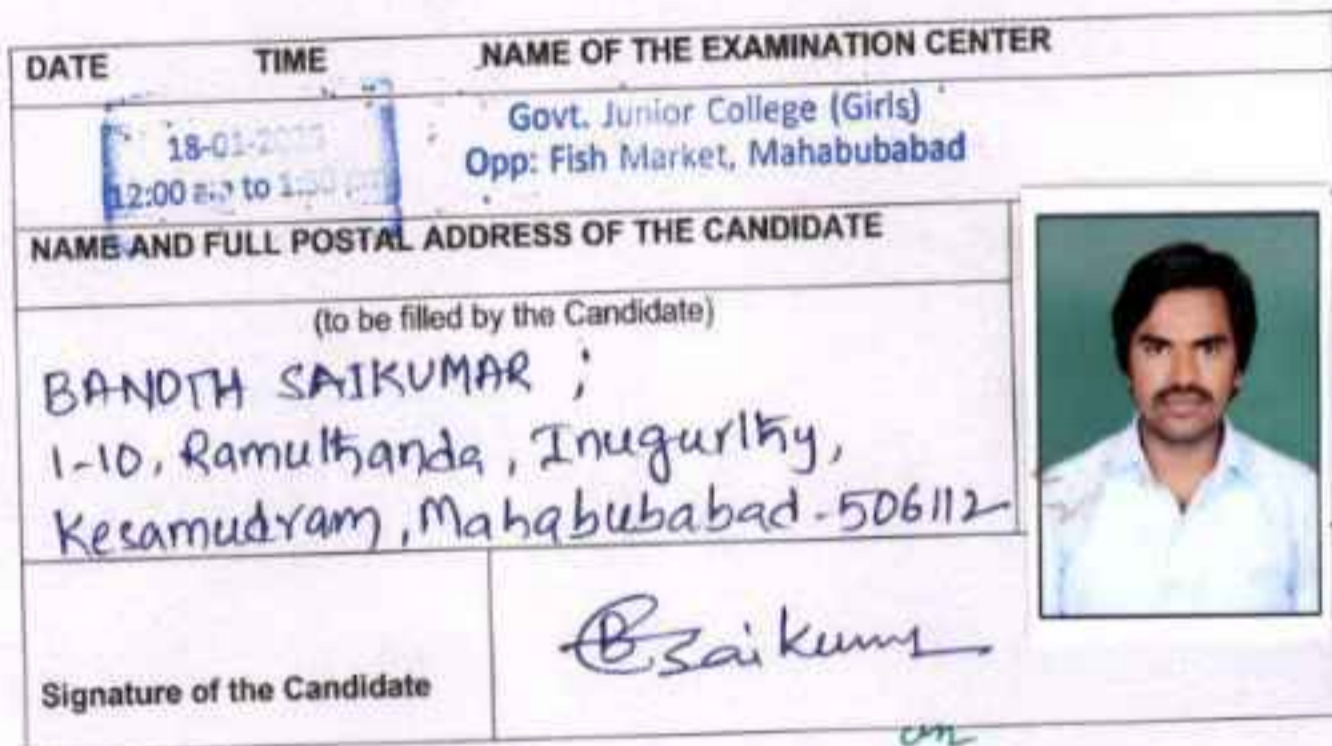 DATE TIME NAME OF THE EXAMINATION CENTER
18-01-
Govt. Junior College (Girls)
12:00 to
Opp: Fish Market, Mahabubabad
NAME AND FULL POSTAL ADDRESS OF THE CANDIDATE
(to be filled by the Candidate)
BANOTH SAIKUMAR ;
1-10, Ramulthanda, Inugurthy,
Kesamudram, Mahabubabad-506112
Signature of the Candidate
B Saikumar